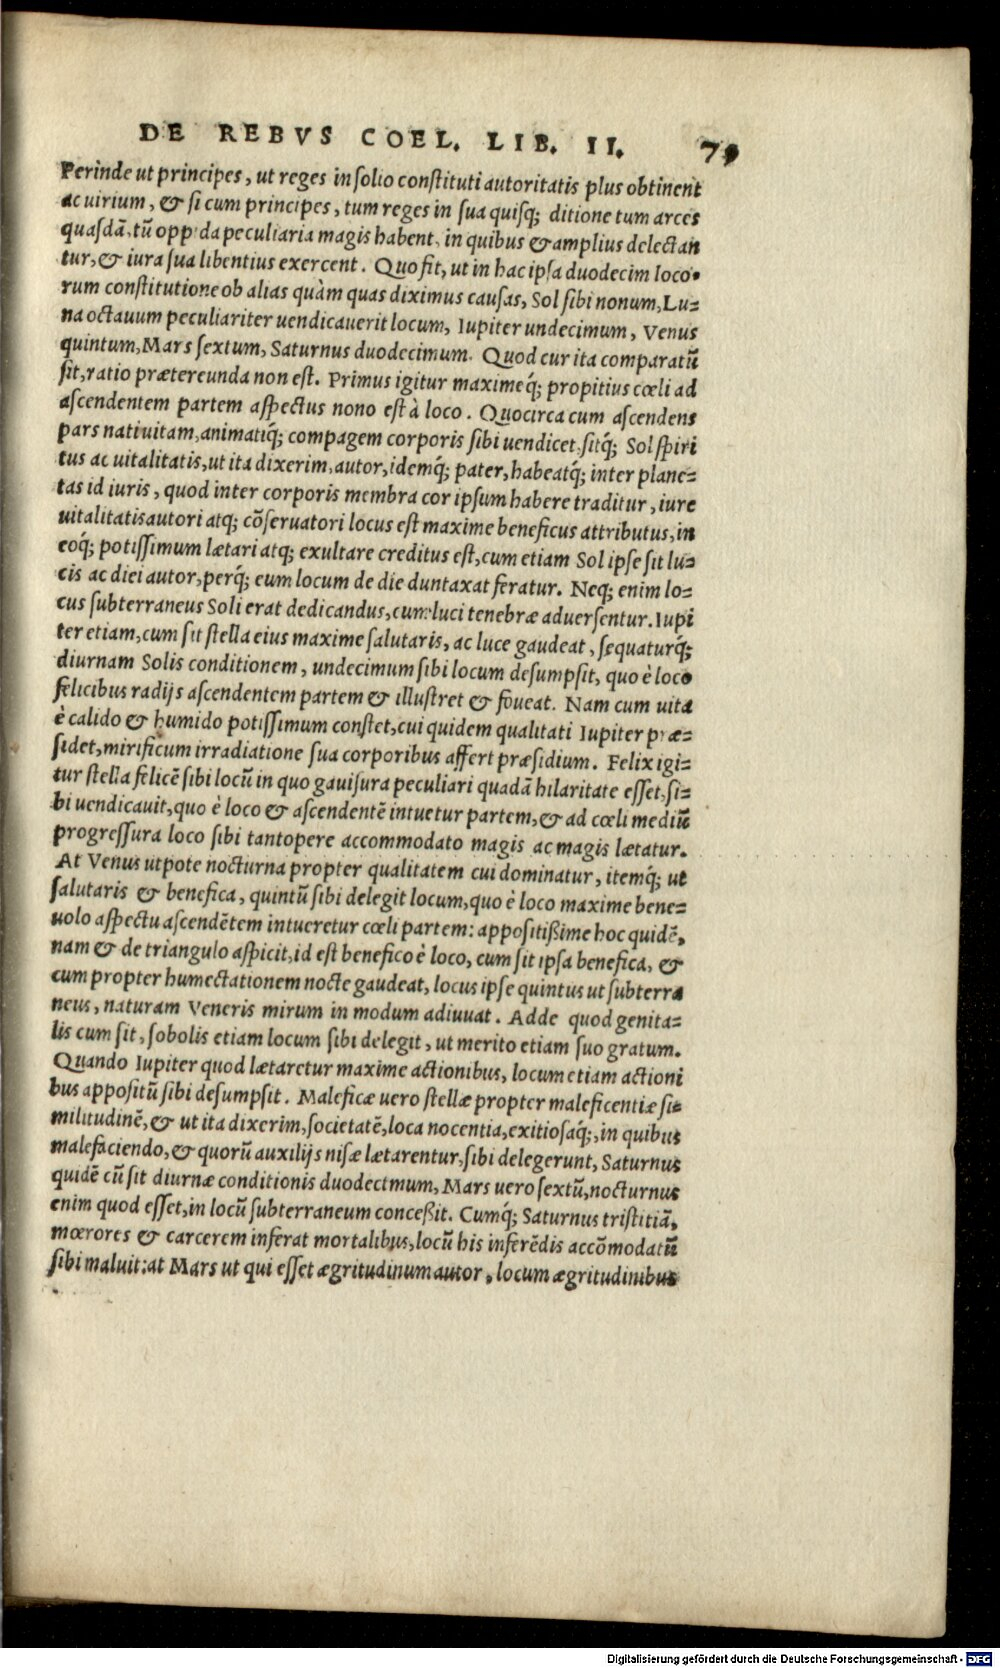 DE REBVS COEL. LIB. II. 79
Perinde ut principes, ut reges in solio constituti autoritatis plus obtinent
ac uirium, & si cum principes, tum reges in sua quisq; ditione tum arces
quasdã, tũ oppida peculiaria magis habent, in quibus & amplius delectan
tur, & iura sua libentius exercent. Quo fit, ut in hac ipsa duodecim loco-
rum constitutione ob alias quàm quas diximus causas, Sol sibi nonum, Lu-
na octauum peculiariter uendicauerit locum, Iupiter undecimum, Venus
quintum, Mars sextum, Saturnus duodecimum. Quod cur ita comparatũ
sit, ratio prætereunda non est. Primus igitur maximeq́; propitius cœli ad
ascendentem partem aspectus nono est à loco. Quocirca cum ascendens
pars natiuitam, animatiq́; compagem corporis sibi uendicet, sitq́; Sol spiri
tus ac uitalitatis, ut ita dixerim, autor, idemq́; pater, habeatq́; inter plane-
tas id iuris, quod inter corporis membra cor ipsum habere traditur, iure
uitalitatis autori atq; cõseruatori locus est maxime beneficus attributus, in
eoq́; potissimum lætari atq; exultare creditus est, cum etiam Sol ipse sit lu-
cis ac diei autor, perq́; eum locum de die duntaxat feratur. Neq; enim lo-
cus subterraneus Soli erat dedicandus, cum luci tenebræ aduersentur. Iupi
ter etiam, cum sit stella eius maxime salutaris, ac luce gaudeat, sequaturq́;
diurnam Solis conditionem, undecimum sibi locum desumpsit, quo è loco
felicibus radijs ascendentem partem & illustret & foueat. Nam cum uita
è calido & humido potissimum constet, cui quidem qualitati Iupiter præ-
sidet, mirificum irradiatione sua corporibus affert præsidium. Felix igi-
tur stella felicẽ sibi locũ in quo gauisura peculiari quadã hilaritate esset, si-
bi uendicauit, quo è loco & ascendentẽ intuetur partem, & ad cœli mediũ
progressura loco sibi tantopere accommodato magis ac magis lætatur.
At Venus utpote nocturna propter qualitatem cui dominatur, itemq́; ut
salutaris & benefica, quintũ sibi delegit locum, quo è loco maxime bene-
uolo aspectu ascendẽtem intueretur cœli partem: appositißime hoc quidẽ,
nam & de triangulo aspicit, id est benefico è loco, cum sit ipsa benefica, &
cum propter humectationem nocte gaudeat, locus ipse quintus ut subterra
neus, naturam Veneris mirum in modum adiuuat. Adde quod genita-
lis cum sit, sobolis etiam locum sibi delegit, ut merito etiam suo gratum.
Quando Iupiter quod lætaretur maxime actionibus, locum etiam actioni
bus appositũ sibi desumpsit. Maleficæ uero stellæ propter maleficentiæ si-
militudinẽ, & ut ita dixerim, societatẽ, loca nocentia, exitiosaq́;, in quibus
malefaciendo, & quorũ auxilijs nisæ lætarentur, sibi delegerunt, Saturnus
quidẽ cũ sit diurnæ conditionis duodectmum, Mars uero sextũ, nocturnus
enim quod esset, in locũ subterraneum conceßit. Cumq́; Saturnus tristitiã,
mœrores & carcerem inferat mortalibus, locũ his inferẽdis accõmodatũ
sibi maluit: at Mars ut qui esset ægritudinum autor, locum ægritudinibus
Digitalisierung gefördert durch die Deutsche Forschungsgemeinschaft - DFG